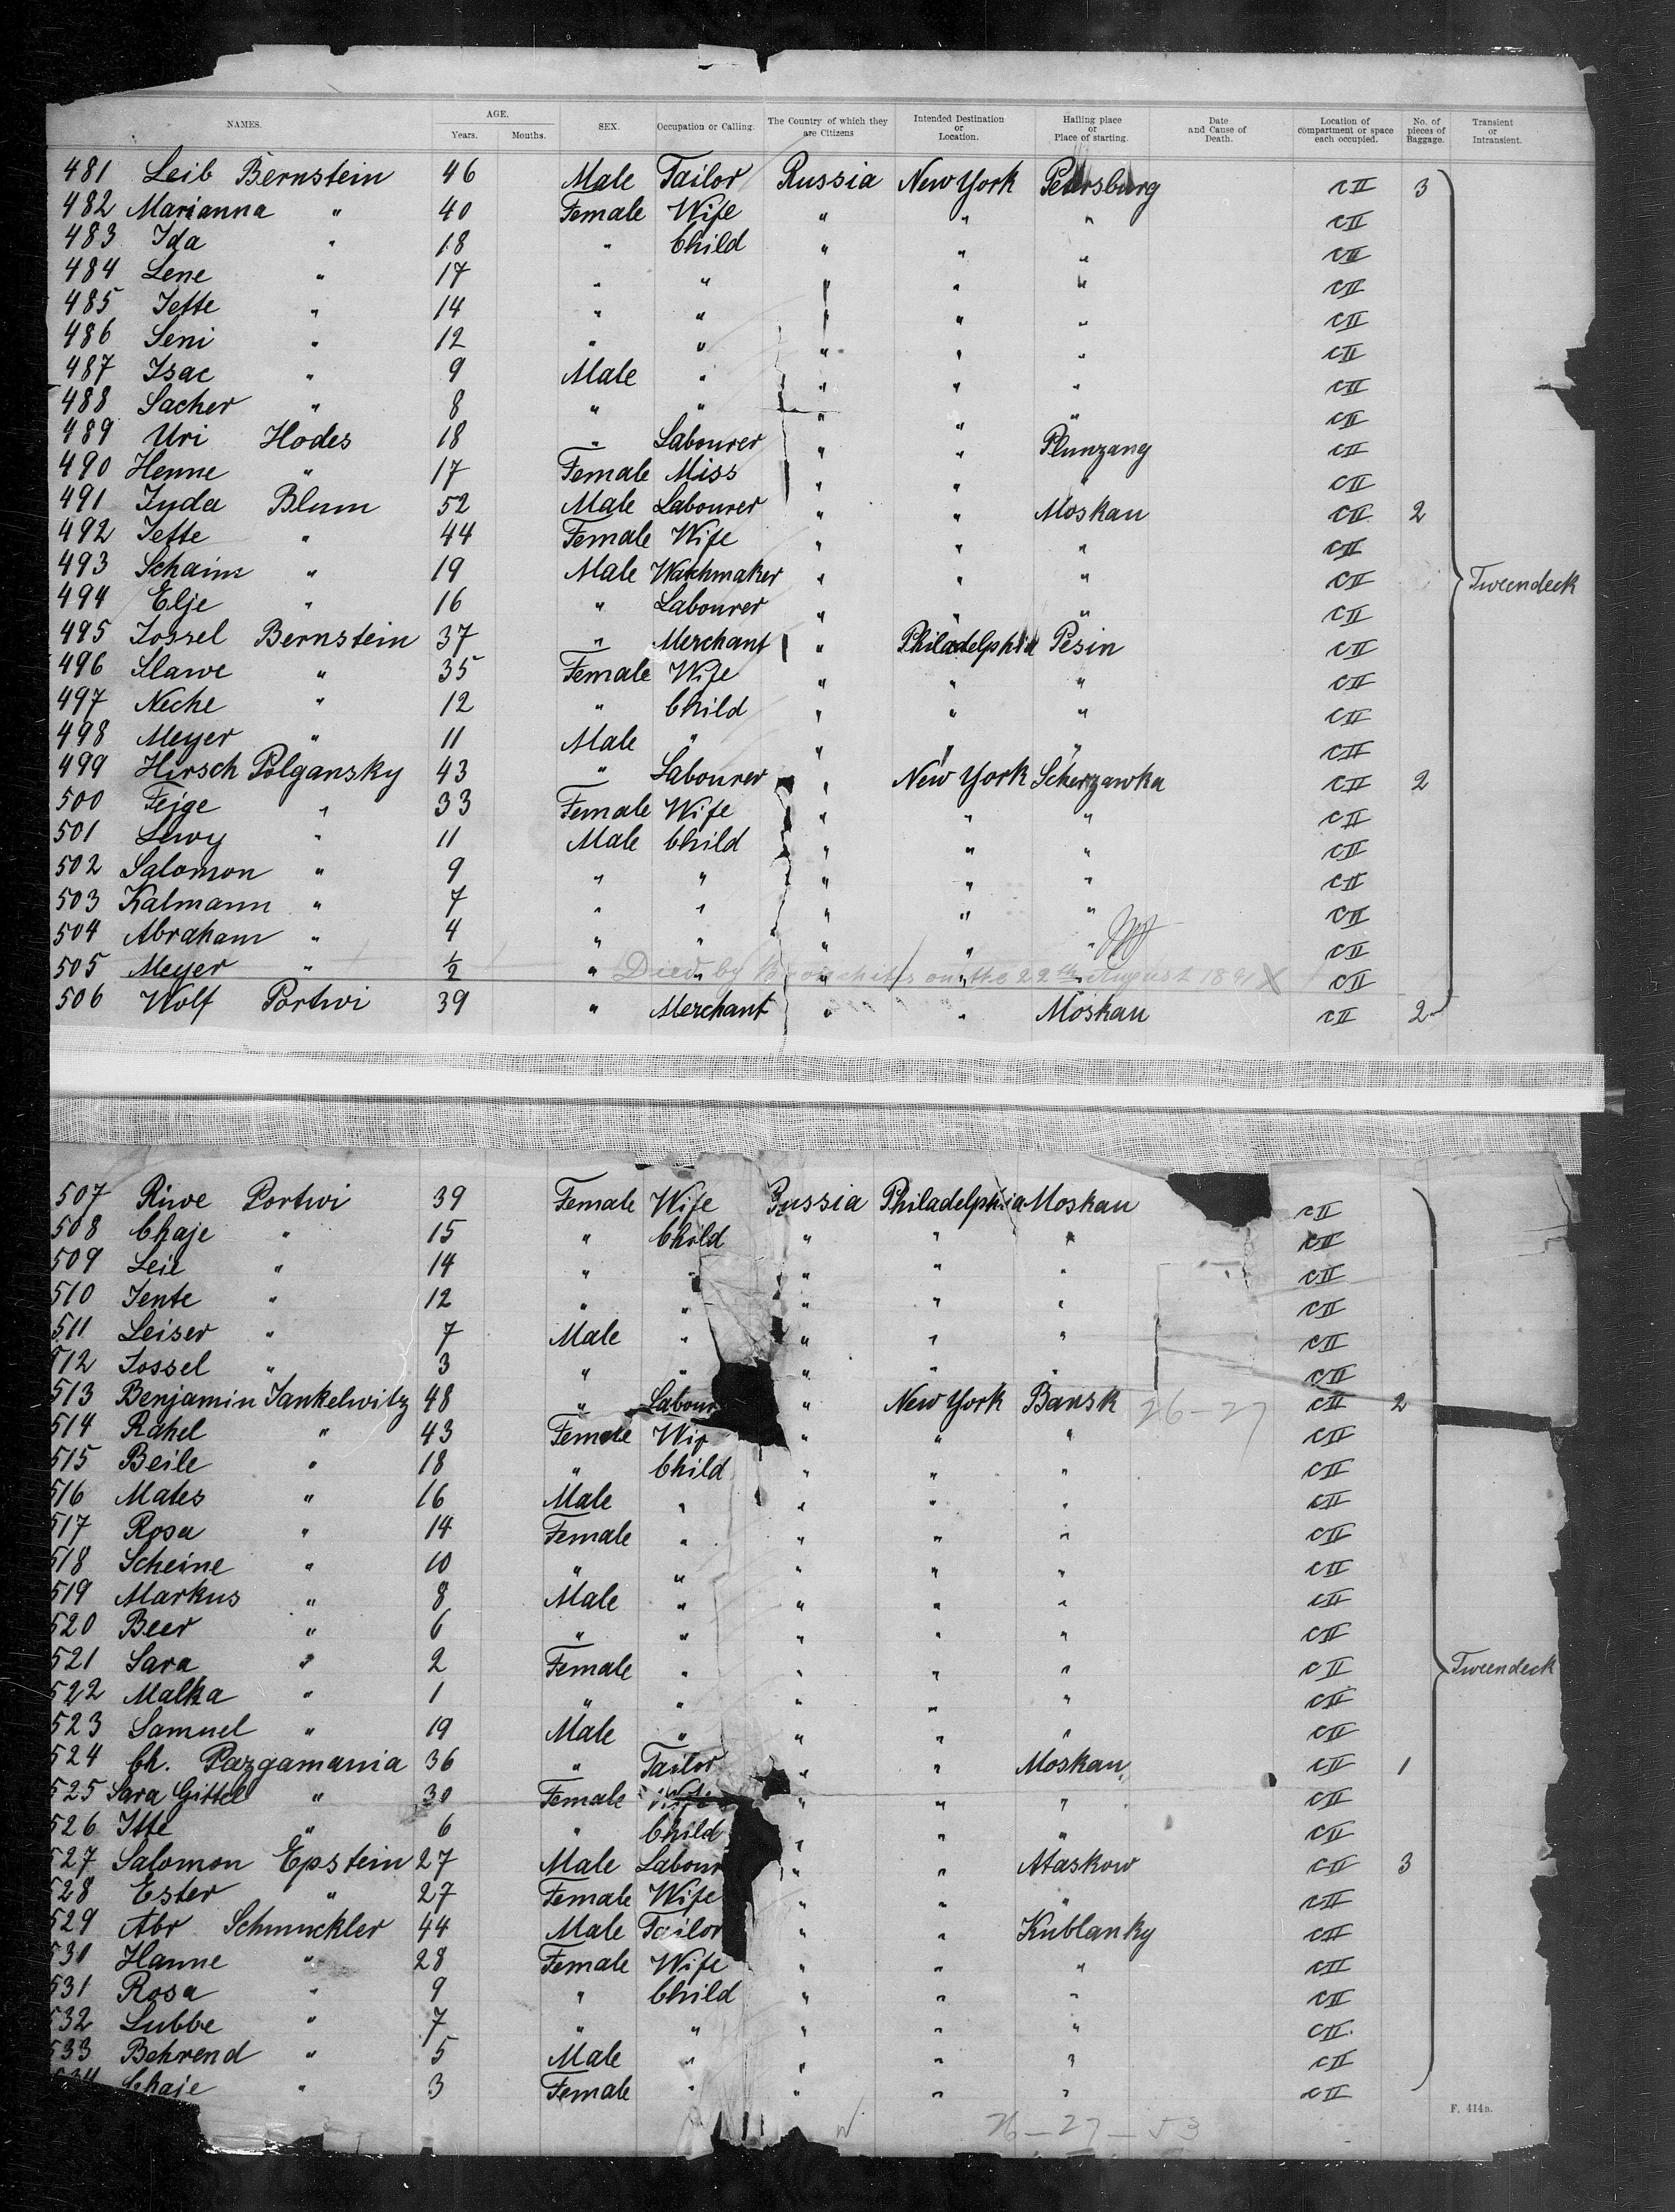 NAMES. AGE. Years. Months. SEX. Occupation or Calling. The Country of which they are Citizens Intended Destination or Location. Hailing place or Place of starting. Date and Cause of Death. Location of compartment or space each occupied. No. of pieces of Baggage. Transient or Intransient.
481 Leib Bernstein 46 Male Tailor Russia New York Petersburg CII 3
482 Marianna " 40 Female Wife " " " CII
483 Ida " 18 " Child " " " CII
484 Lene " 17 " " " " " CII
485 Jette " 14 " " " " " CII
486 Seni " 12 " " " " " CII
487 Isac " 9 Male " " " " CII
488 Sacher " 8 " " " " " CII
489 Uri Hodes 18 " Labourer " " Plunzang CII
490 Henne " 17 Female Miss " " " CII
491 Juda Blum 52 Male Labourer " " Moskau CII 2
492 Jette " 44 Female Wife " " " CII
493 Schaim " 19 Male Watchmaker " " " CII
Tweendeck
494 Elje " 16 " Labourer " " " CII
495 Jossel Bernstein 37 " Merchant " Philadelphia Pesin CII
496 Slawe " 35 Female Wife " " " CII
497 Neche " 12 " Child " " " CII
498 Meyer " 11 Male " " " " CII
499 Hirsch Polgansky 43 " Labourer " New York Scherzawka CII 2
500 Feige " 33 Female Wife " " " CII
501 Lewy " 11 Male Child " " " CII
502 Salomon " 9 " " " " " CII
503 Kalmann " 7 " " " " " CII
504 Abraham " 4 " " " " " CII
505 Meyer " 1/2 " " " " CII
Died by Bronchitis on the 22th August 1891 X
506 Wolf Portwi 39 " Merchant " " Moskau CII 2
507 Riwe Portwi 39 Female Wife Russia Philadelphia Moskau CII
508 Chaje " 15 " Child " " " CII
509 Leie " 14 " " " " " CII
510 Jente " 12 " " " " " CII
511 Leiser " 7 Male " " " " CII
512 Jossel " 3 " " " " " CII
513 Benjamin Jankelwitz 48 " Labour " New York Bansk 26-27 CII 2
514 Rahel " 43 Female Wif " " " CII
515 Beile " 18 " Child " " " CII
516 Mates " 16 Male " " " " CII
517 Rosa " 14 Female " " " " CII
518 Scheine " 10 " " " " " CII
519 Markus " 8 Male " " " " CII
520 Beer " 6 " " " " " CII
521 Sara " 2 Female " " " " CII
Tweendeck
522 Malka " 1 " " " " " CII
523 Samuel " 19 Male " " " " CII
524 Ch. Pazgamania 36 " Tailor " " Moskau CII 1
525 Sara Gittel " 30 Female Wife " " " CII
526 Itte " 6 " Child " " " CII
527 Salomon Epstein 27 Male Labour " " Ataskow CII 3
528 Ester " 27 Female Wife " " " CII
529 Abr Schmuckler 44 Male Tailor " " Kublanky CII
530 Hanne " 28 Female Wife " " " CII
531 Rosa " 9 " Child " " " CII
532 Lubbe " 7 " " " " " CII
533 Behrend " 5 Male " " " " CII
534 Chaje " 3 Female " " " " CII
F. 414a.
26-27-53